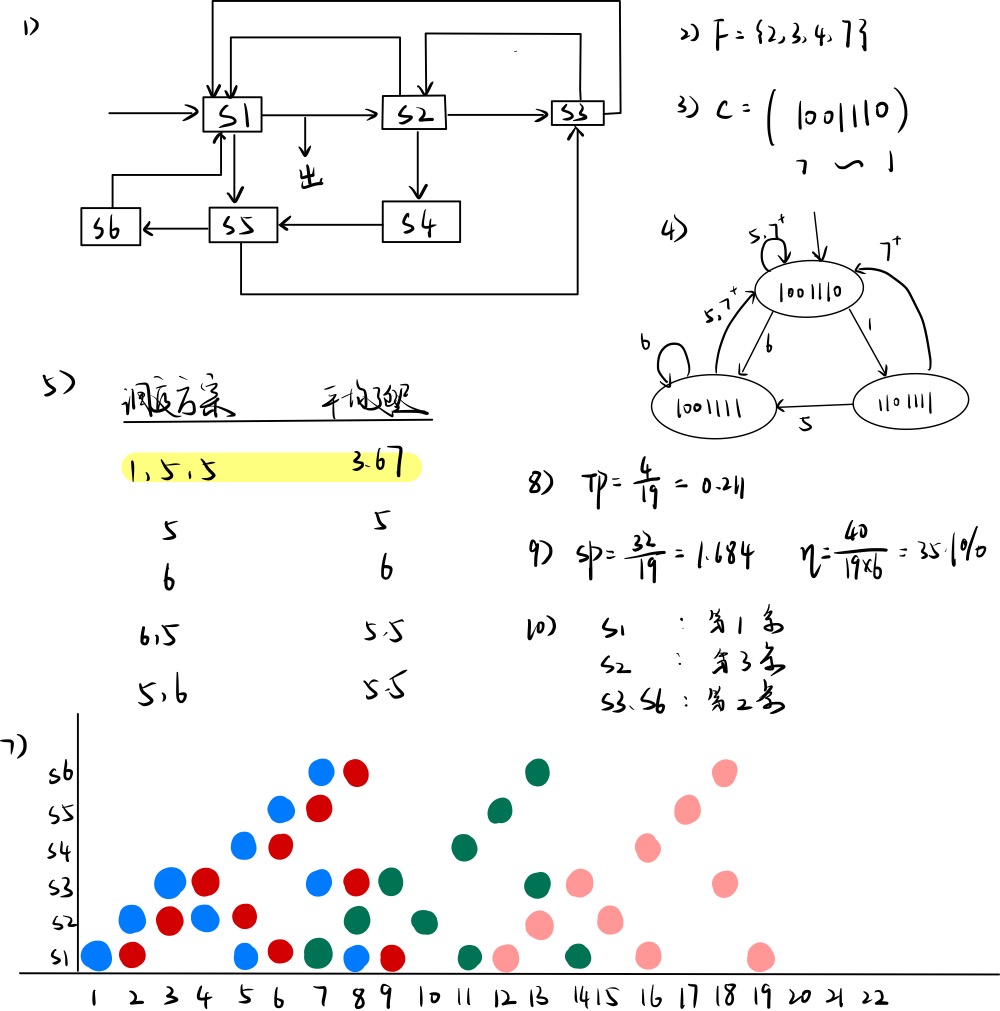 1)
S1
S2
S3
出
S6
S5
S4
2) F = {2,3,4,7}
3) C = (1001110)
7 ~ 1
4)
5,7⁺
7⁺
1001110
5,7⁺
6
1
6
1001111
1101111
5
5)
调度方案 平均延迟
1,5,5 3.67
5 5
6 6
6,5 5.5
5,6 5.5
8) TP = 4/19 = 0.211
9) SP = 32/19 = 1.684 η = 40/(19×6) = 35.1%
10) S1 : 第1条
S2 : 第3条
S3.S6 : 第2条
7)
S6
S5
S4
S3
S2
S1
1 2 3 4 5 6 7 8 9 10 11 12 13 14 15 16 17 18 19 20 21 22